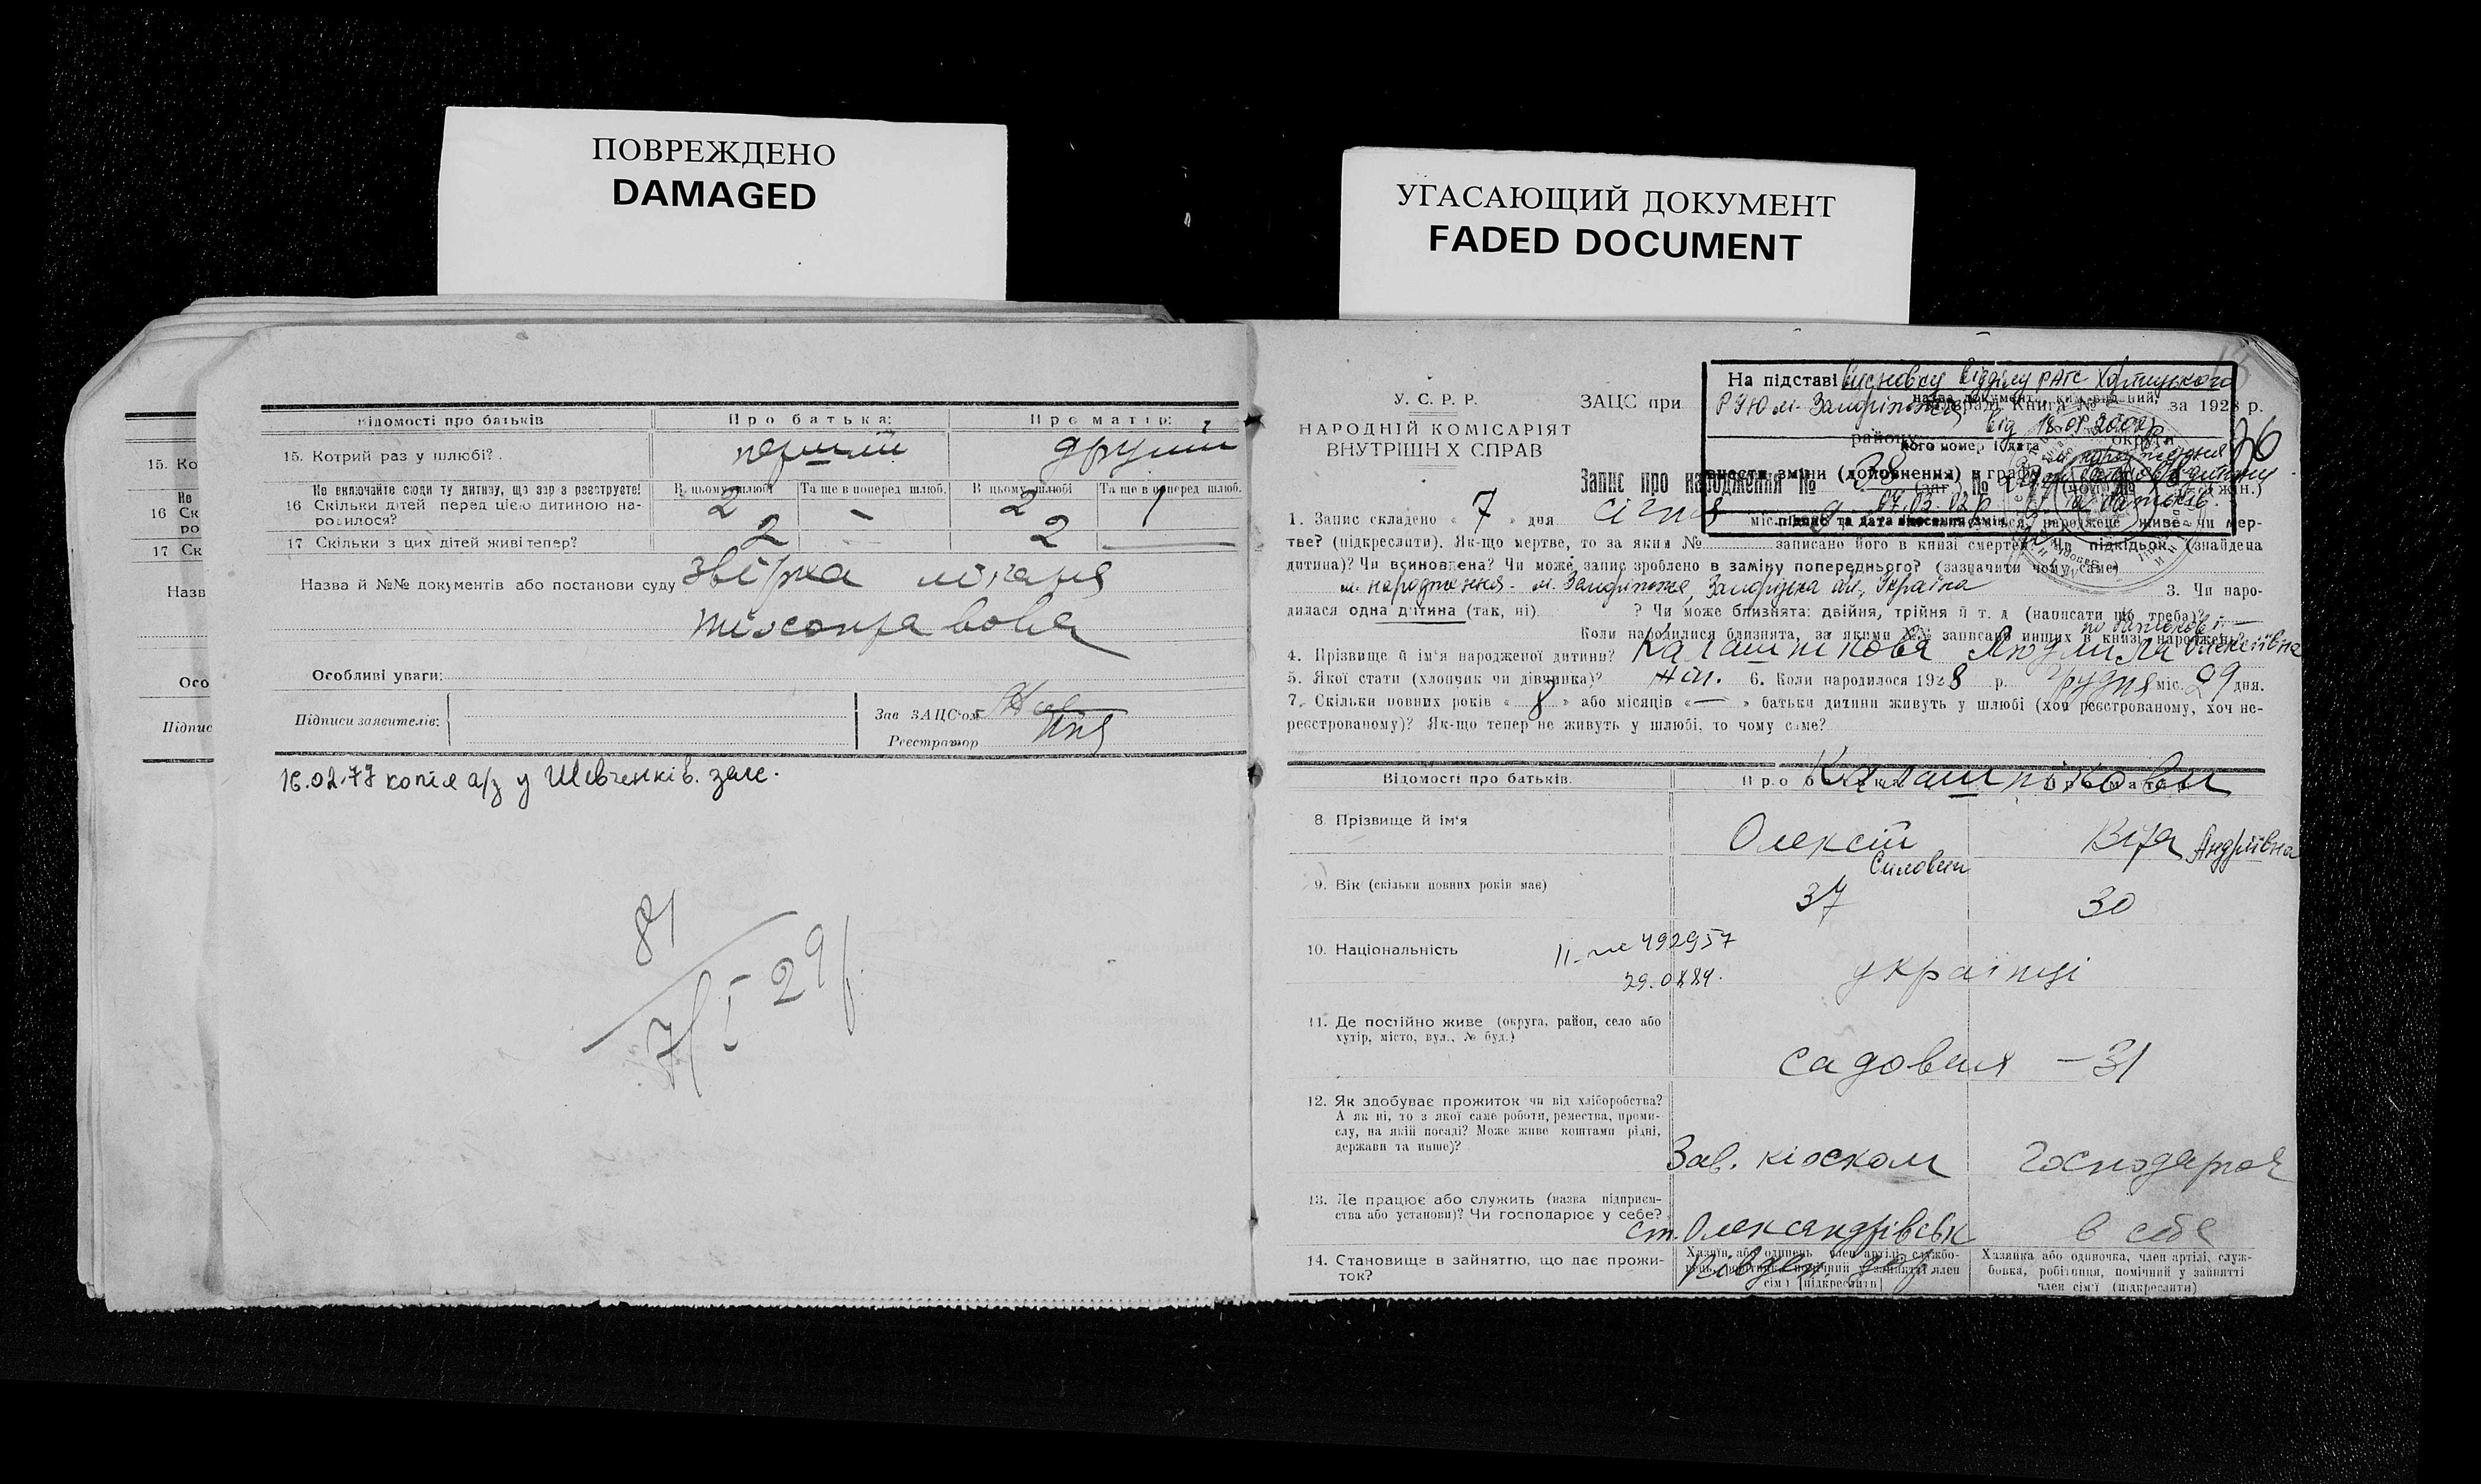 ПОВРЕЖДЕНО
DAMAGED
УГАСАЮЩИЙ ДОКУМЕНТ
FADED DOCUMENT
Відомості про батьків
Про батька:
Про матір:
15. Котрий раз у шлюбі?
перший
другий
Не виключайте сюди ту дитину, що зар з реєструєте!
В цьому шлюбі
Та ще в поперед шлюб.
В цьому шлюбі
Та ще в поперед шлюб.
16 Скільки дітей перед цією дитиною народилося?
2
–
2
1
17 Скільки з цих дітей живі тепер?
2
–
2
Назва й №№ документів або постанови суду
Особливі уваги:
Підписи заявителів:
Зав ЗАЦС'ом
Реєстратор
16.02.77 копія а/з у Шевченків. загс.
81
7/I 29р.
15. Ко
Не
16 Ск
ро
17 Ск
Назв
Осо
Підпис
У. С. Р. Р.
НАРОДНІЙ КОМІСАРІЯТ
ВНУТРІШН Х СПРАВ
ЗАЦС при
Книга №
за 1928 р.
На підставі висновку відділу РАГС Хортицького
РУЮ м. Запоріжжя
від 18.01.2002
району
округи
внести зміни (доповнення) в графу
07.03.02р
підпис та дата внесення змін
Запис про народження №
36
1. Запис складено « 7 » дня січня міс.
народжене живе чи мертве? (підкреслити). Як-що мертве, то за яким № записано його в книзі смертей? Чи підкідьок (знайдена
дитина)? Чи всиновлена? Чи може запис зроблено в заміну попереднього? (зазначити чому саме)
м. народження - м. Запоріжжя, Запорізька обл., Україна
3. Чи народилася одна дитина (так, ні) ? Чи може близнята: двійня, трійня й т. д (написати що треба)?
Коли народилися близнята, за якими №№ записано инших в книзі народжень?
по батькові -
4. Прізвище й ім'я народженої дитини? Калашнікова Людмила Олексіївна
5. Якої стати (хлопчик чи дівчинка)? жін. 6. Коли народилося 1928 р. грудня міс. 29 дня.
7. Скільки повних років « 8 » або місяців « — » батьки дитини живуть у шлюбі (хоч реєстрованому, хоч нереєстрованому)? Як-що тепер не живуть у шлюбі, то чому саме?
Відомості про батьків.
Калашнікови
8. Прізвище й ім'я
Олексій
Віра Андріївна
9. Вік (скільки повних років має)
37
30
10. Національність
492957
українці
11. Де постійно живе (округа, район, село або
хутір, місто, вул., № буд.)
Садовая – 31
12. Як здобуває прожиток чи від хліборобства?
А як ні, то з якої саме роботи, ремества, промислу, на якій посаді? Може живе коштами рідні,
держави та инше)?
Зав. кіоском
Господарює
13. Де працює або служить (назва підприємства або установи)? Чи господарює у себе?
ст. Олександрівськ
в себе
14. Становище в зайняттю, що дає прожиток?
Хазяїн або одинець член артілі, службо-
сім'ї [підкреслити]
Хазяйка або одиночка, член артілі, службовка, робітниця, помічний у зайнятті
член сім'ї (підкреслити)